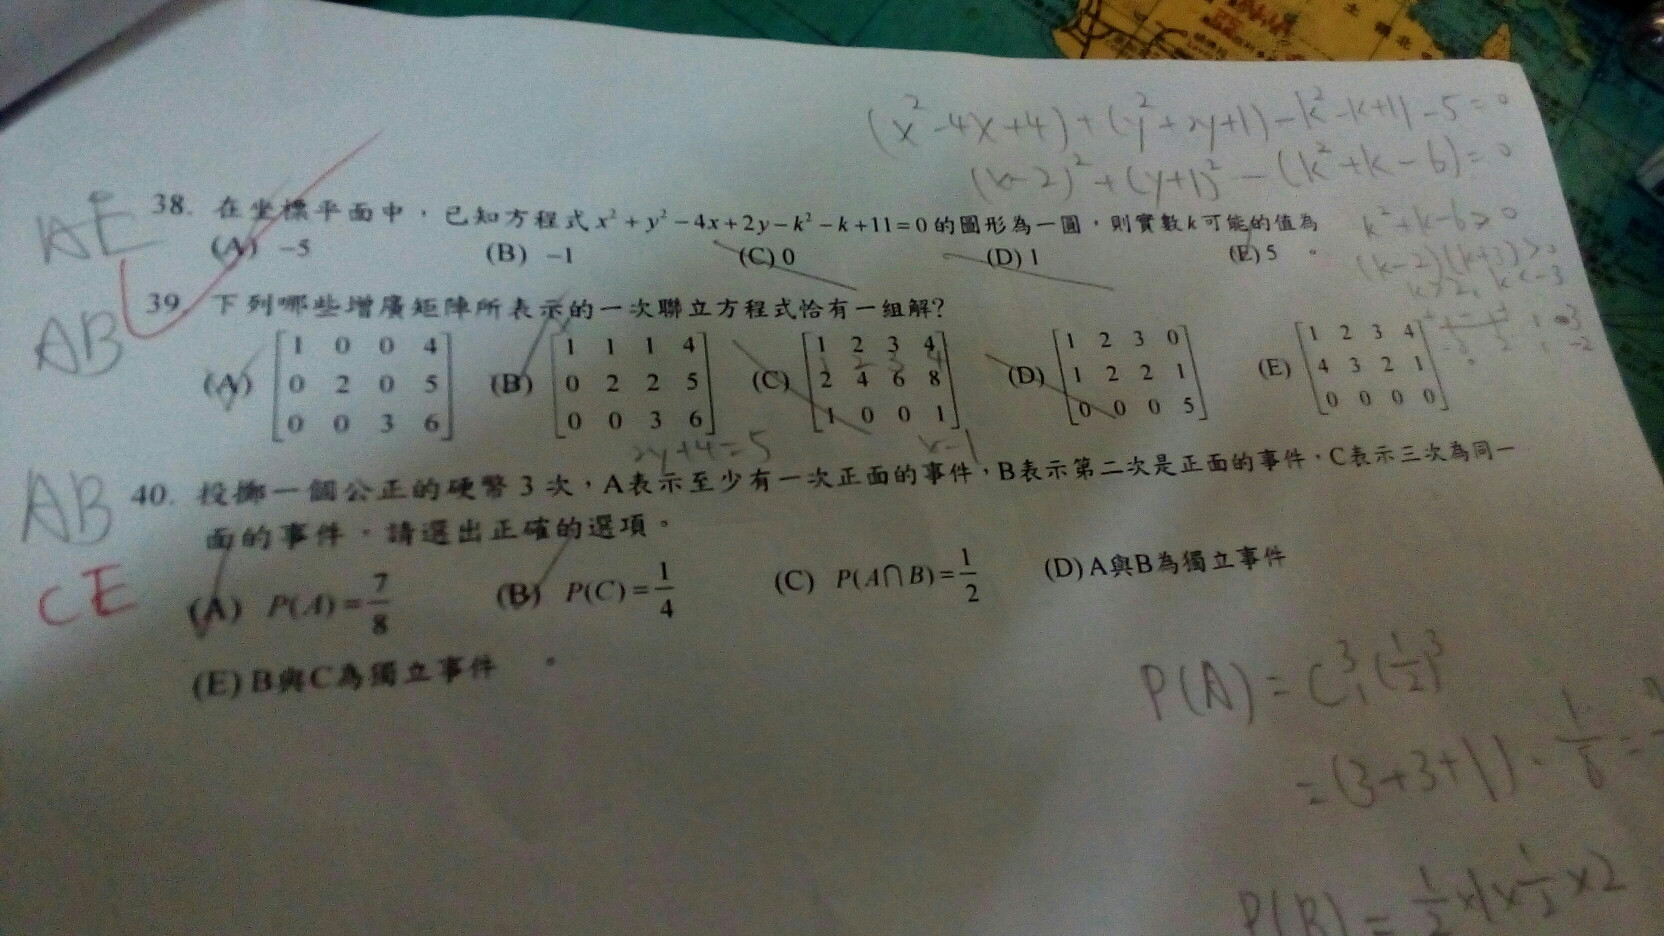 (x²-4x+4)+(y²+2y+1)-k²-k+11-5=0
(x-2)²+(y+1)²-(k²+k-6)=0
AE
38. 在坐標平面中，已知方程式x²+y²-4x+2y-k²-k+11=0的圖形為一圓，則實數k可能的值為
(A) -5 (B) -1 (C) 0 (D) 1 (E) 5 。
k²+k-6>0
(k-2)(k+3)>0
k>2, k<-3
AB
39. 下列哪些增廣矩陣所表示的一次聯立方程式恰有一組解?
(A) [1 0 0 4 (B) [1 1 1 4 (C) [1 2 3 4 (D) [1 2 3 0 (E) [1 2 3 4
0 2 0 5 0 2 2 5 2 4 6 8 1 2 2 1 4 3 2 1
0 0 3 6] 0 0 3 6] 1 0 0 1] 0 0 0 5] 0 0 0 0]
2y+4=5 x=1
AB
40. 投擲一個公正的硬幣 3 次，A表示至少有一次正面的事件，B表示第二次是正面的事件，C表示三次為同一
面的事件。請選出正確的選項。
CE
(A) P(A)=7/8 (B) P(C)=1/4 (C) P(A∩B)=1/2 (D) A與B為獨立事件
(E) B與C為獨立事件 。
P(A)=C³₁(1/2)³
=(3+3+1)·1/8=
P(B)=1/2×1×1/2×2